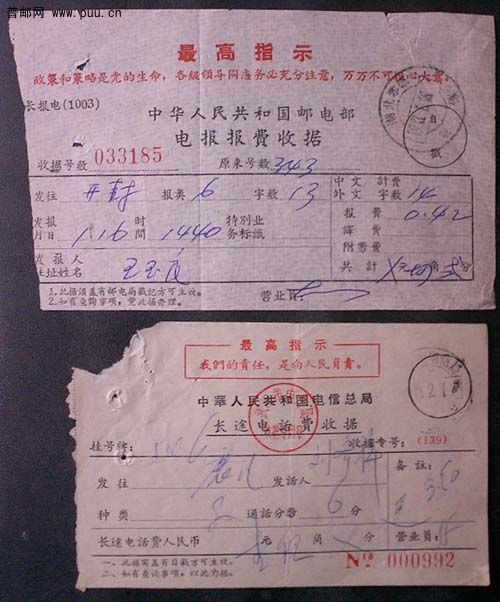 普邮网 www.pu4.cn
最高指示
政策和策略是党的生命，各级领导同志务必充分注意，万万不可粗心大意。
长报电(1003)
中华人民共和国邮电部
电报报费收据
收据号数 033185 原来号数 343
发往 开封 报类 6 字数 13 中文 計費
外文 字数 14
发报 时 特別业 报費 0.42
月日 1.16 間 1440 务标識 譯費
附帶費
发报人 王玉民 共計 元 角 分
住址姓名
1.此据須盖有邮电局戳記方可生效。
2.如有查詢事項，凭此据办理。 营业員:
最高指示
我們的責任，是向人民負責。
中華人民共和国电信总局
长途电話費收据
挂号牌: 收据专号: (139)
发往 发話人 备註:
种类 通話分数 6 分
长途电話費人民币 元 角 分 营业員:
No 000992
一、此据需盖有日戳方可生效。
二、如有查詢事項，以此为据。